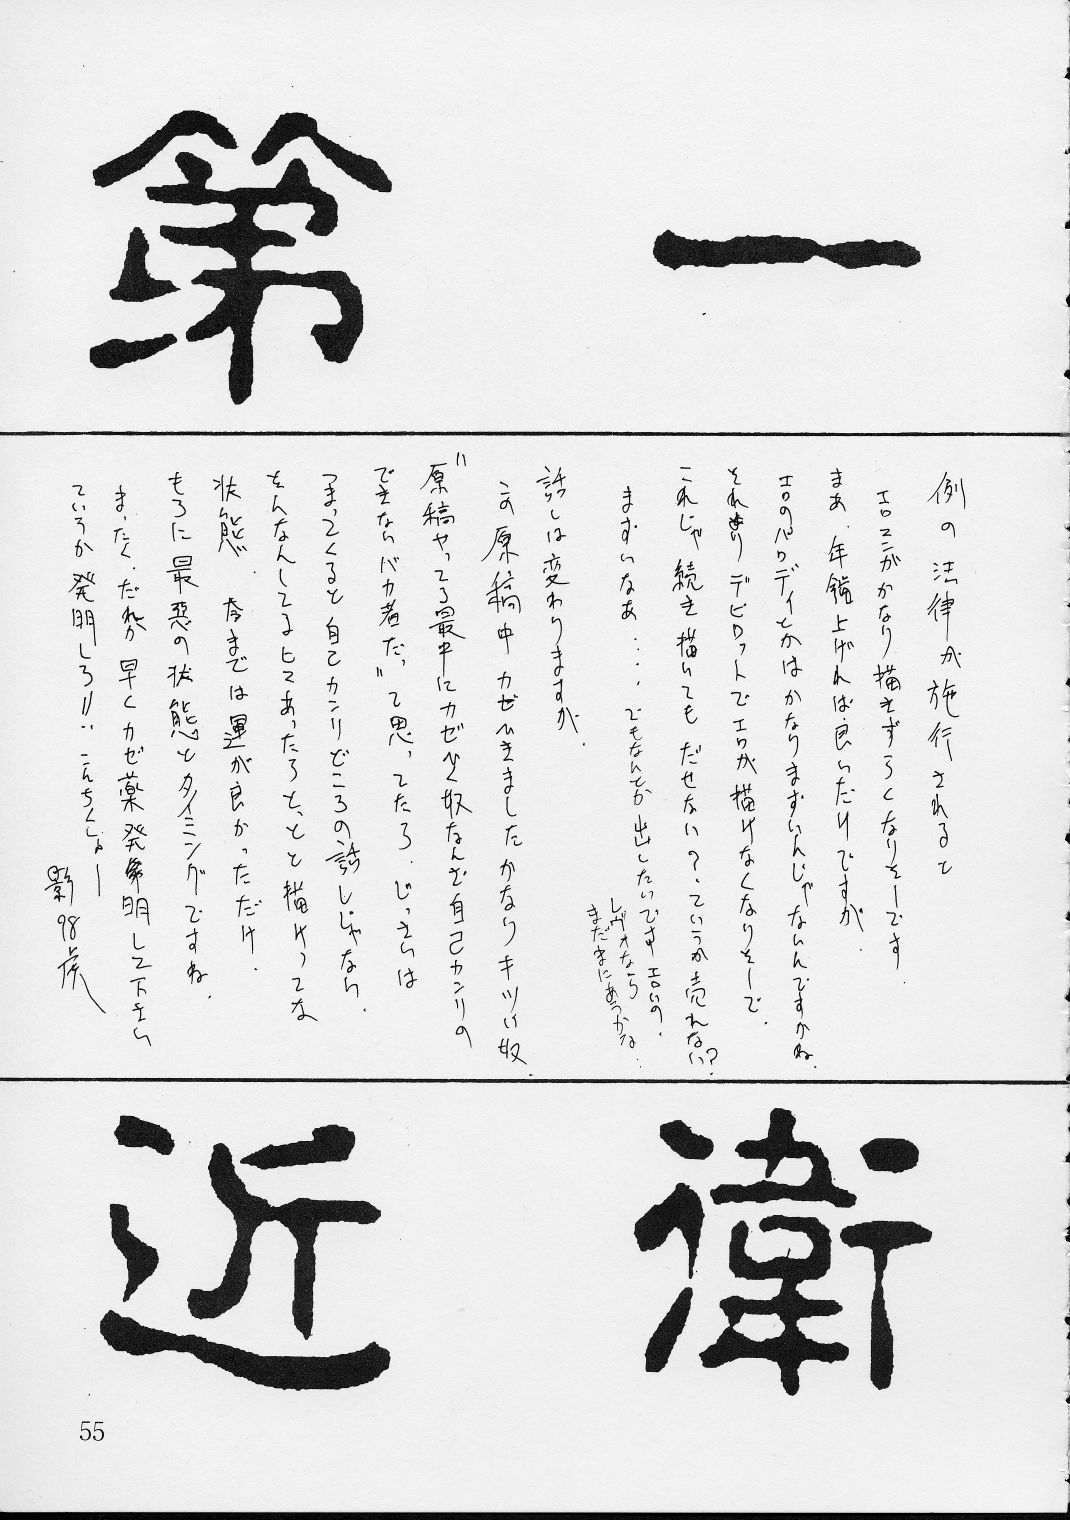 第一
例の法律が施行されると
エロマンガがかなり描きずらくなりそーです
まあ、年齢上げれば良いだけですが、
エロのパロディとかはかなりまずいんじゃないんですかね、
それよりデビロットでエロが描けなくなりそーで、
これじゃ続き描いてもだせない?、ていうか売れない?、
まずいなあ・・・、でもなんとか出したいですエロいの、
レヴォなら
まだまにあうかな、
話しは変わりますが、
この原稿中カゼひきましたかなりキツい奴、
"原稿やってる最中にカゼひく奴なんざ自己カンリの
できないバカ者だっ"て思ってたら、じっさいは
つまってくると自己カンリどころの話しじゃない、
そんなんしてるヒマあったらとっとと描けってな
状態、今までは運が良かっただけ、
もろに最悪の状態とタイミングですね、
まったく、だれか早くカゼ薬発明して下さい
ていうか発明しろ!!、こんちくしょー
影98虎
近衛
55